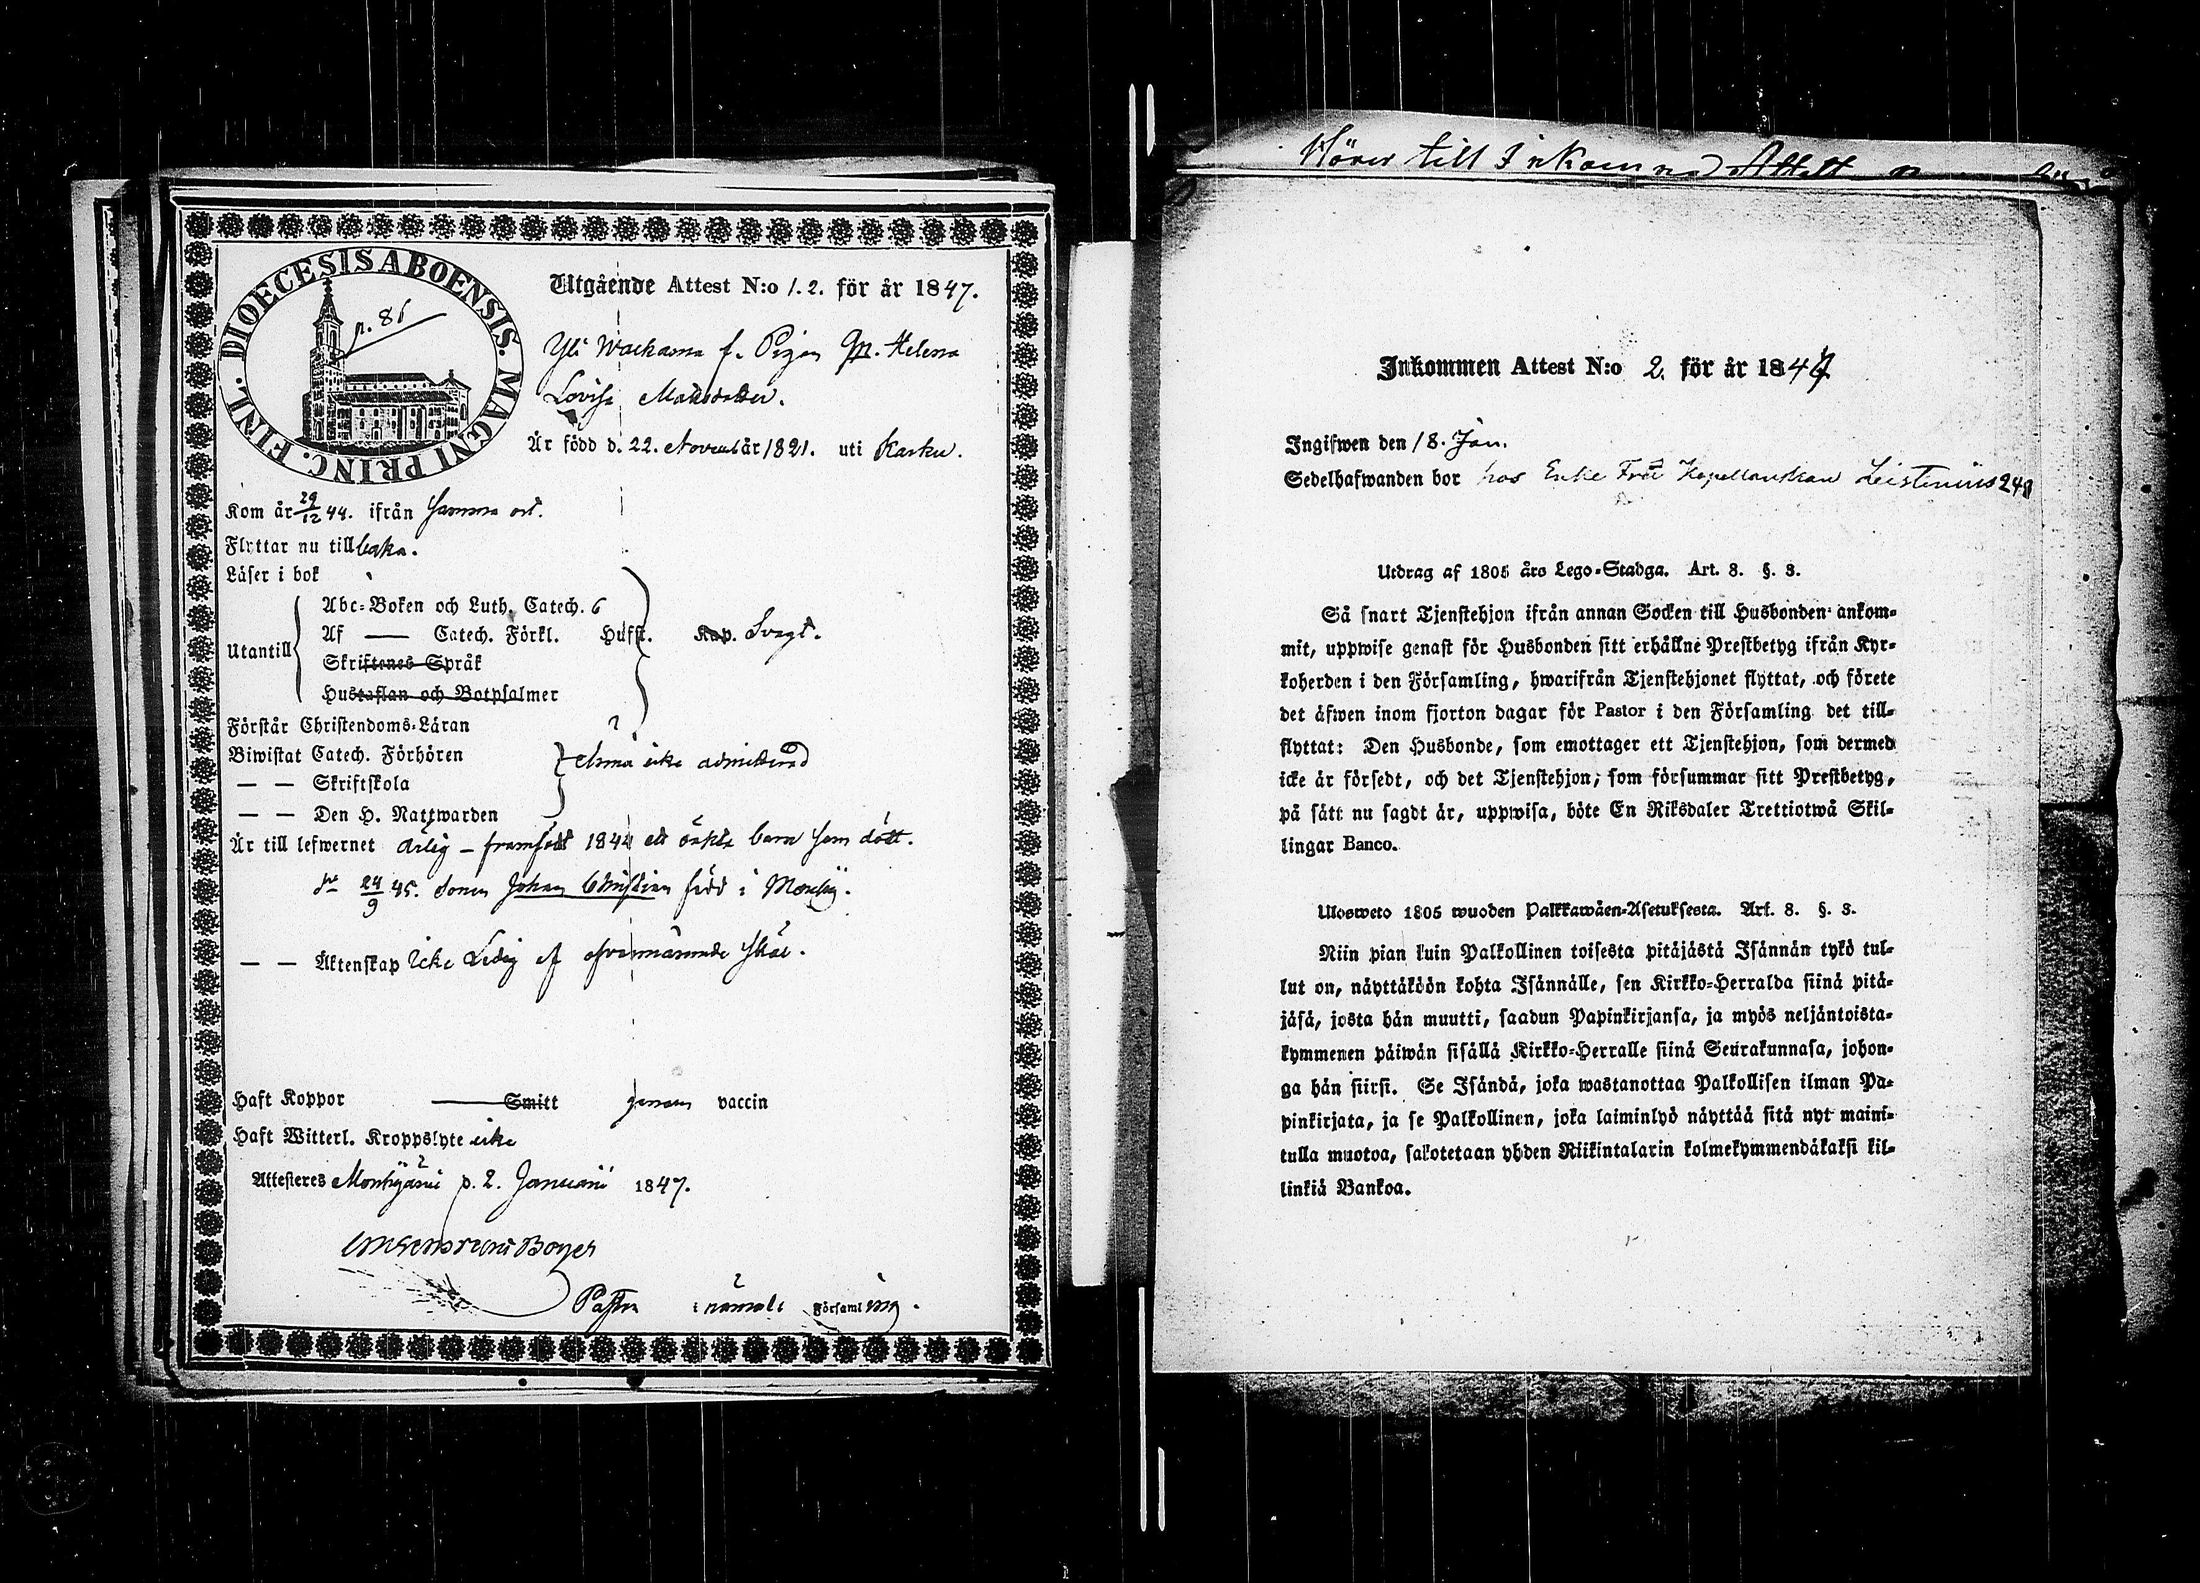 DIOECESIS ABOENSIS. MAGNI PRINC. FINL.
p. 86
Utgående Attest N:o 1.2. för år 1847.
Yli f. Pigan Helena
Lovisa
Är född d. 22. November år 1821. uti Karku.
Kom år 29/12 44. ifrån samma ort.
Flyttar nu tillbaka.
Läser i bok
Utantill
Abc-Boken och Luth. Catech. 6
Af — Catech. Förkl. Husft. Kap. Svagt.
Skriftenes Språk
Hustaflan och Botpsalmer
Förstår Christendoms-Läran
Biwistat Catech. Förhören
— — Skriftskola
ännu icke admitterad
— — Den H. Nattwarden
Är till lefwernet ärlig – framfödt 1844 ett oäkta barn som dött.
24/9 45. sonen Johan Christian född i
— — Äktenskap icke Ledig af ofvannämnde skäl.
Haft Koppor — Smitt genom vaccin
Haft Witterl. Kroppslyte icke
Attesteres Mouhijärvi d. 2. Januarii 1847.
Pastor i nämnde Församling.
Hörer till Inkomne Attest
Inkommen Attest N:o 2. för år 1847
Ingifwen den 18. Jan.
Sedelhafwanden bor hos Enke Fru Kapellanskan Leistenius 248
Utdrag af 1805 års Lego-Stadga. Art. 8. §. 3.
Så snart Tjenstehjon ifrån annan Socken till Husbonden ankom-
mit, uppwise genast för Husbonden sitt erhållne Prestbetyg ifrån Kyr-
koherden i den Församling, hwarifrån Tjenstehjonet flyttat, och förete
det äfwen inom fjorton dagar för Pastor i den Församling det till-
flyttat: Den Husbonde, som emottager ett Tjenstehjon, som dermed
icke är försedt, och det Tjenstehjon, som försummar sitt Prestbetyg,
på sätt nu sagdt är, uppwisa, böte En Riksdaler Trettiotwå Skil-
lingar Banco.
Ulosweto 1805 wuoden Palkkawäen-Asetuksesta. Art. 8. §. 3.
Niin pian kuin Palkollinen toisesta pitäjästä Isännän tykö tul-
lut on, näyttäköön kohta Isännälle, sen Kirkko-Herralda siinä pitä-
jäsä, josta hän muutti, saadun Papinkirjansa, ja myös neljäntoista-
kymmenen päiwän sisällä Kirkko-Herralle siinä Seurakunnasa, johon-
ga hän siirsi. Se Isändä, joka wastanottaa Palkollisen ilman Pa-
pinkirjata, ja se Palkollinen, joka laiminlyö näyttää sitä nyt maini-
tulla muotoa, sakotetaan yhden Riikintalarin kolmekymmendäkaksi kil-
linkiä Bankoa.